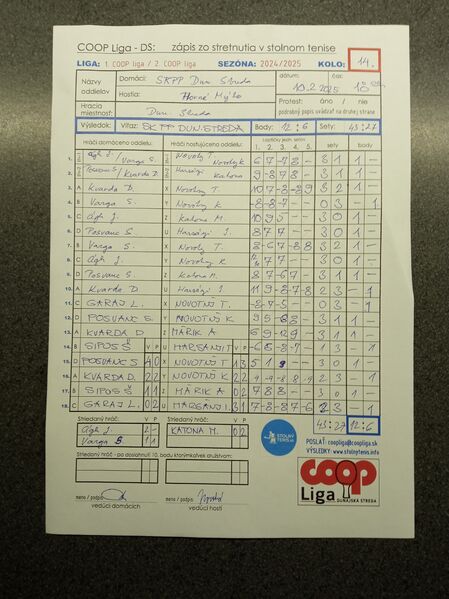 COOP Liga - DS: zápis zo stretnutia v stolnom tenise
LIGA: 1. COOP liga / 2. COOP liga SEZÓNA: 2024/2025 KOLO: 14.
Názvy oddielov
Domáci: SKPP Dun Streda
Hostia: Horné Mýto
dátum: 10.2.2025 čas: 18
Hracia miestnosť: Dun. Streda
Protest: áno / nie
podrobný popis uvádzať na druhej strane
Výsledok: Víťaz: SK PP DUN.STREDA Body: 12:6 Sety: 43:27
Hráči domáceho oddielu: Hráči hosťujúceho oddielu: sety body
1. 2. 3. 4. 5.
1. Ágh J. / Varga S. Novotny T. Novotny K 6 7 -7 8 - 3 1 1 -
2. Posvanc S / Kvarda D. Harsányi Katona 9 -8 7 8 - 3 1 1 -
3. A Kvarda D. X Novotny T. 10 7 -8 -8 9 3 2 1 -
4. B Varga S. Y Novotny K -8 -8 -7 - - 0 3 - 1
5. C Ágh J. Z Katona M. 10 9 5 - - 3 0 1 -
6. D Posvanc S. U Harsányi J. 8 7 7 - - 3 0 1 -
7. B Varga S. X Novotny T. 8 -6 7 -8 8 3 2 1 -
8. C Ágh J. Y Novotny K 7 7 - - 3 0 1 -
9. D Posvanc S. Z Katona M. 8 7 -6 7 - 3 1 1 -
10. A Kvarda D U Harsányi J 11 9 -8 -7 -8 2 3 - 1
11. C GARAJ L. X NOVOTNÝ T. -8 -7 -5 - - 0 3 - 1
12. D POSVANC S. Y NOVOTNÝ K 3 1 1 -
13. A KVARDA D Z MÁRIK A 3 1 1 -
14. B SIPOS Š U HARSÁNYI J. -6 -8 -7 1 3 - 1
15. D POSVANC S 4 0 X NOVOTNÝ T 1 3 5 1 9 - - 3 0 1 -
16. A KVARDA D. 2 2 Y NOVOTNÝ K 2 2 2 3 - 1
17. B SIPOS Š 1 1 Z MÁRIK A 0 2 7 8 8 - - 3 0 1 -
18. C GARAJ L. 0 2 U HARSÁNYI J. 3 1 -7 -8 7 -8 7 -6 2 3 - 1
Striedaný hráč: V P Striedaný hráč: V P 43:27 12:6
Ágh J. 2 - KATONA M. 0 2
Varga S 1 1
STOLNÝ TENIS
POSLAŤ: coopliga@coopliga.sk
VÝSLEDKY: www.stolnytenis.info
Striedaný hráč - po dosiahnutí 10. bodu ktorýmkoľvek družstvom:
V P V P
meno / podpis meno / podpis
vedúci domácich vedúci hostí
coop
Liga
DUNAJSKÁ STREDA